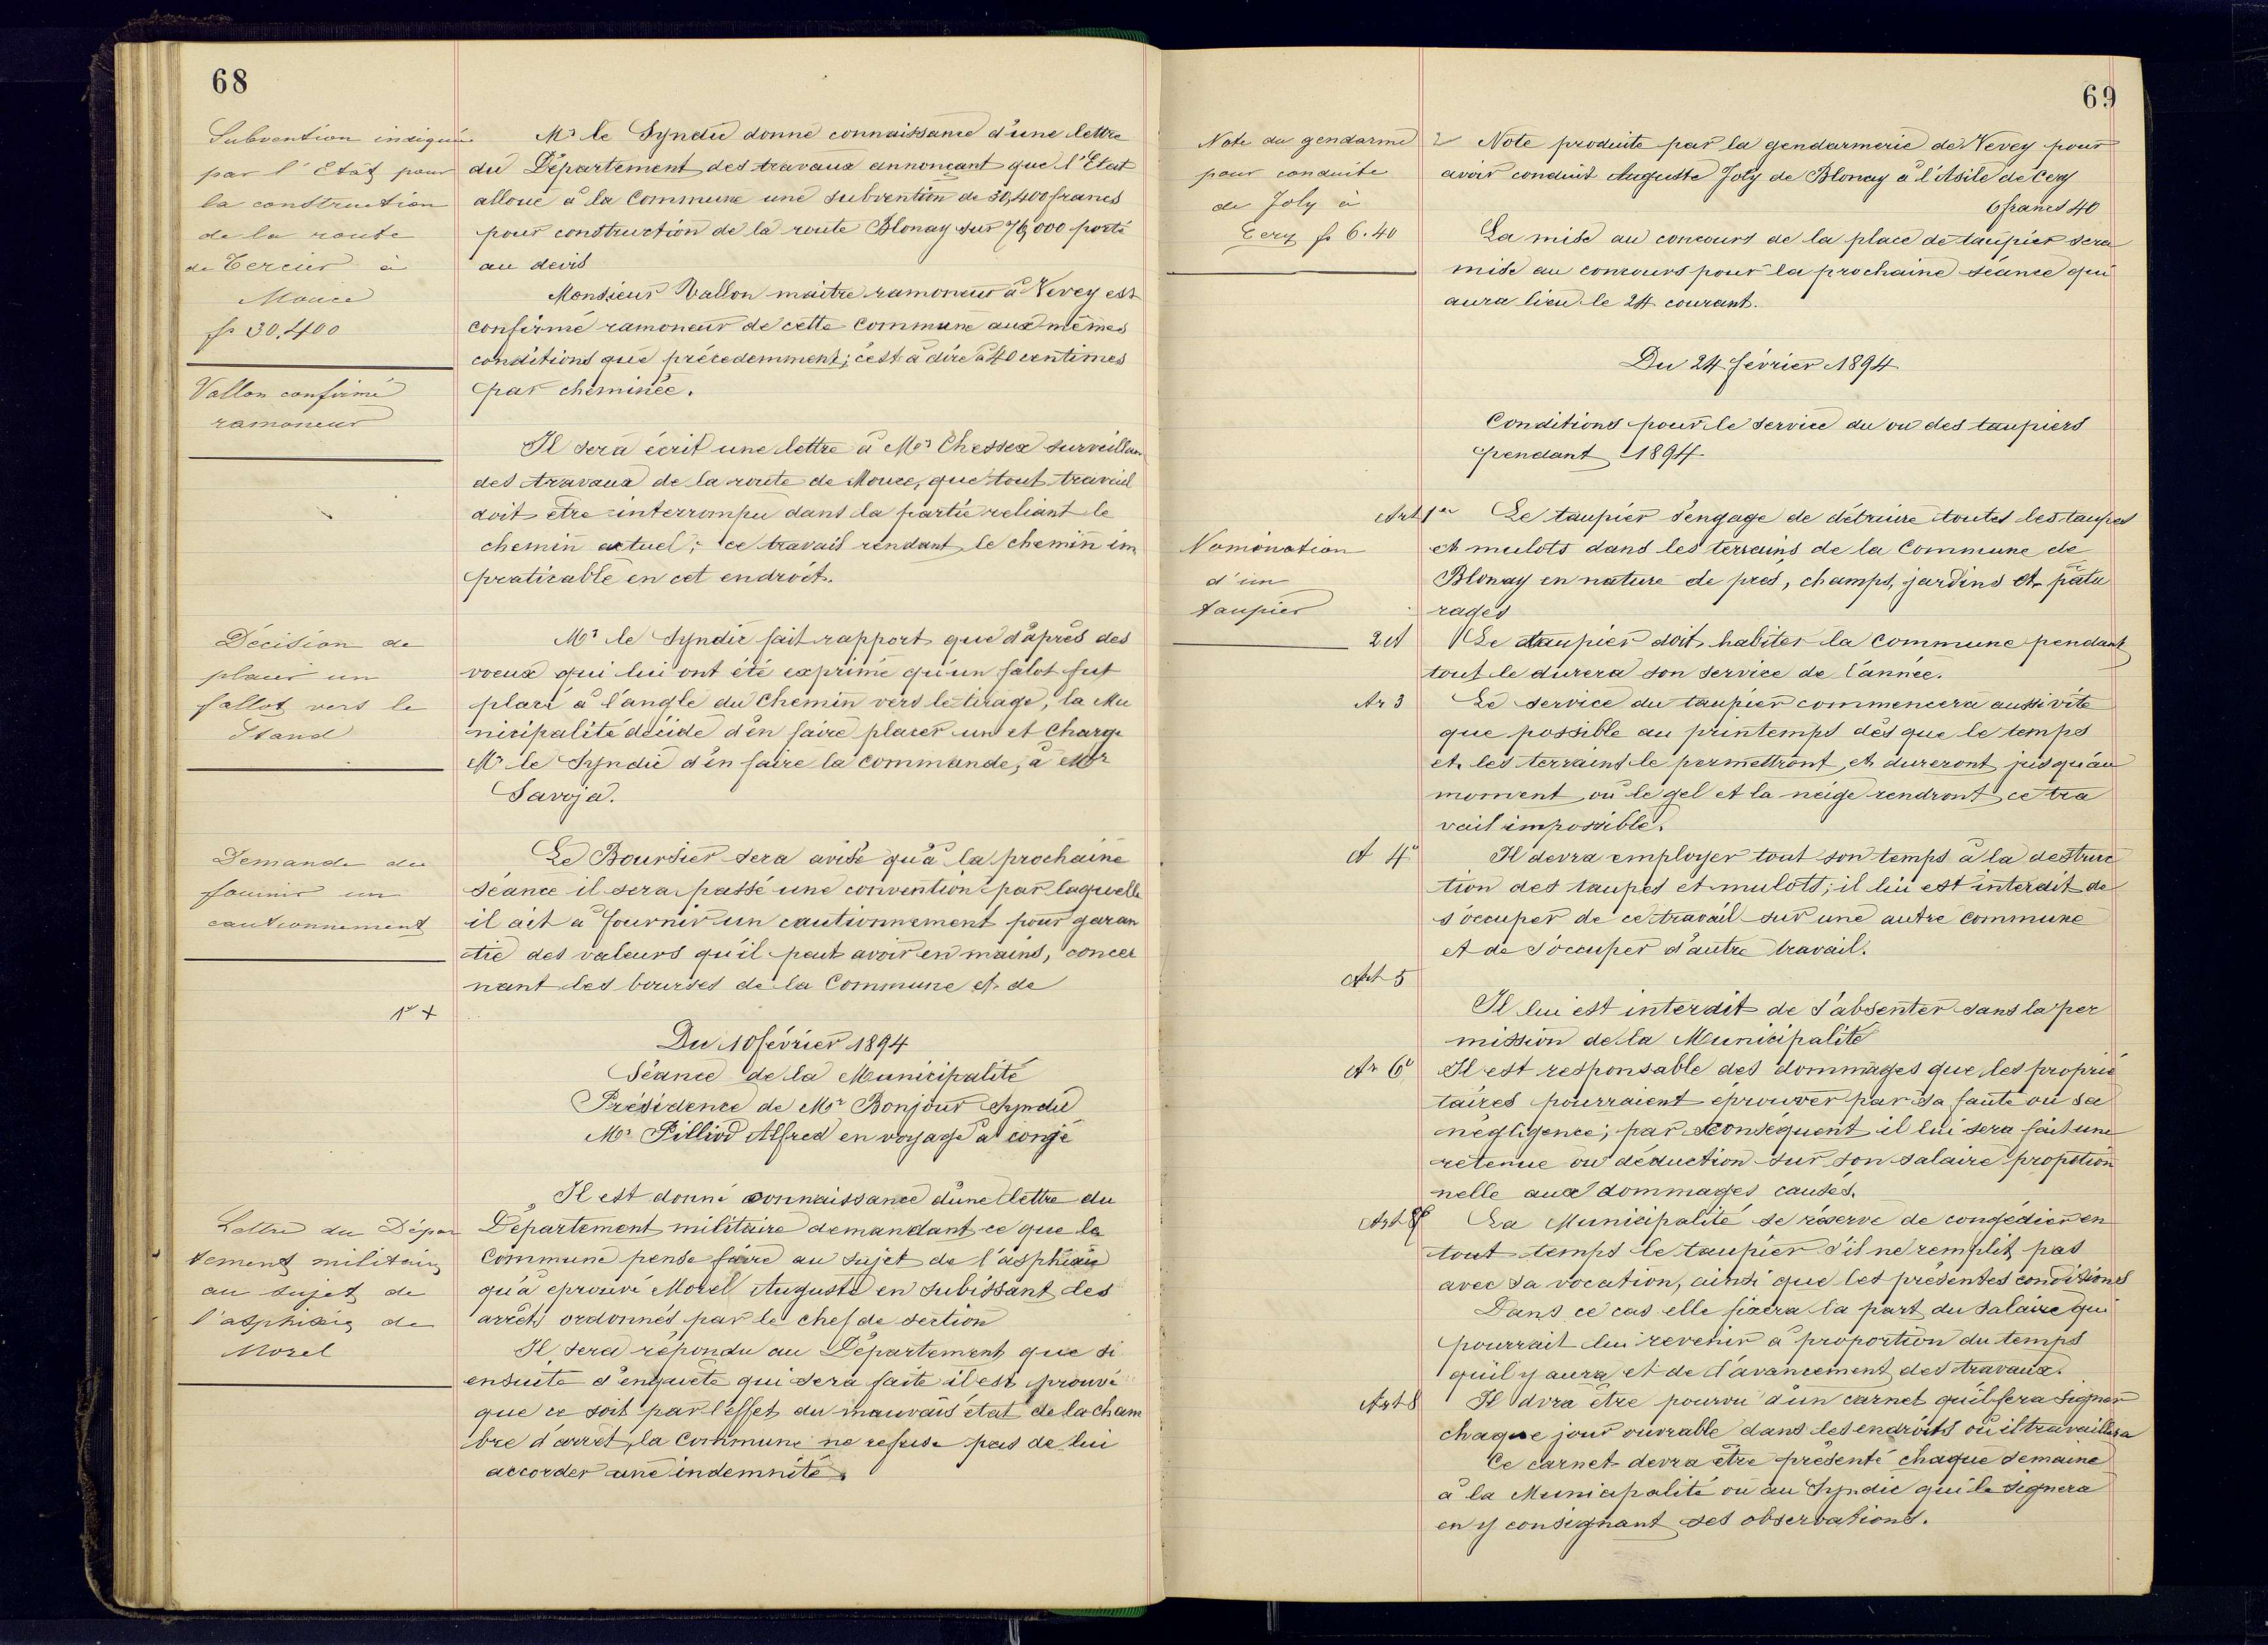 68
Subvention indiquée
par l'Etat pour
la construction
de la route
de Tercier à
Mouce
fr 30,400
Vallon confirmé
ramoneur
Décision de
placer un
fallot vers le
Stand
Demande de
fournir un
cautionnement
Lettre du Dépar
tement militaire
au sujet de
l'asphixie de
Morel
Mr le Syndic donne connaissance d'une lettre
du Département des travaux annonçant que l'Etat
alloue à la Commune une subvention de 30,400 francs
pour construction de la route Blonay sur 76,000 porté
au devis
Monsieur Vallon maître ramoneur à Vevey est
confirmé ramoneur de cette Commune aux mêmes
conditions que précedemment; c'est à dire à 40 centimes
par cheminée.
Il sera écrit une lettre à Mr Chessex surveillan
des travaux de la route de Mouce, que tout travail
doit être interrompu dans la partie reliant le
chemin actuel; ce travail rendant le chemin im
praticable en cet endroit.
Mr le Syndic fait rapport que d'après des
voeux qui lui ont été exprimé qu'un falot fut
placé à l'angle du Chemin vers le tirage, la Mu
nicipalité décide d'en faire placer un et charge
Mr le Syndic d'en faire la commande, à Mr
Savoja.
Le Boursier sera avisé qu'à la prochaine
séance il sera passé une convention par laquelle
il ait à fournir un cautionnement pour garan
tie des valeurs qu'il peut avoir en mains, concer
nant les bourses de la Commune et de
Du 10 février 1894
Séance de la Municipalité
Présidence de Mr Bonjour Syndic
Mr Pilliod Alfred en voyage a congé
Il est donné connaissance d'une lettre du
Département militaire demandant ce que la
Commune pense faire au sujet de l'asphixie
qu'a eprouvé Morel Auguste en subissant des
arrêts ordonnés par le chef de section
Il sera répondu au Département que si
ensuite d'enquête qui sera faite il est prouvé
que ce soit par l'effet du mauvais état de la cham
bre d'arrêt, la Commune ne refuse pas de lui
accorder une indemnité.
69
Note du gendarme
pour conduite
de Joly à
Cery fr 6.40
Nomination
d'un
taupier
Note produite par la gendarmerie de Vevey pour
avoir conduit Auguste Joly de Blonay à l'Asile de Cery
6 francs 40
La mise au concours de la place de taupier sera
mise au concours pour la prochaine séance qui
aura lieu le 24 courant.
Du 24 février 1894
Conditions pour le service du ou des taupiers
pendant 1894
Art 1er Le taupier s'engage de détruire toutes les taupes
et mulots dans les terrains de la Commune de
Blonay en nature de prés, champs, jardins et patu
rages
2 et Le taupier doit habiter la Commune pendant
tout le durera son service de l'année.
Ar 3 Le service du taupier commencera aussi vite
que possible au printemps dès que le temps
et les terrains le permettront, et dureront jusqu'au
moment où le gel et la neige rendront ce tra
vail impossible.
A 4e Il devra employer tout son temps à la destruc
tion des taupes et mulots; il lui est interdit de
s'occuper de ce travail sur une autre commune
et de s'occuper d'autre travail.
Art 5
Il lui est interdit de s'absenter sans la per
mission de la Municipalité
Ar 6e Il est responsable des dommages que les proprié
taires pourraient éprouver par sa faute ou sa
négligence; par conséquent il lui sera fait une
retenue ou déduction sur son salaire propotion
nelle aux dommages causés.
Art La Municipalité se réserve de congédier en
tout temps le taupier s'il ne remplit pas
avec sa vocation, ainsi que les présentes conditions
Dans ce cas elle fixera la part du salaire qui
pourrait lui revenir à proportion du temps
qu'il y aura et de l'avancement des travaux.
Art 8 Il dvra être pourvu d'un carnet qu'il fera signer
chaque jour ouvrable dans les endroits où il travaillera
Ce carnet devra être présenté chaque semaine
à la Municipalité ou au Syndic qui le signera
en y consignant ses observations.